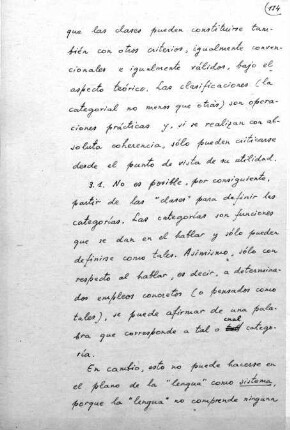 124
que las clases pueden constituirse tam-
bién con otros criterios, igualmente conven-
cionales e igualmente válidos, bajo el
aspecto teórico. Las clasificaciones (la
categorial no menos que otras) son opera-
ciones prácticas y, si se realizan con ab-
soluta coherencia, sólo pueden criticarse
desde el punto de vista de su utilidad.
3.1. No es posible, por consiguiente,
partir de las "clases" para definir las
categorías. Las categorías son funciones
que se dan en el hablar y sólo pueden
definirse como tales. Asimismo, sólo con
respecto al hablar, es decir, a determina-
dos empleos concretos (o pensados como
tales), se puede afirmar de una pala-
bra que corresponde a tal o cual catego-
ría.
En cambio, esto no puede hacerse en
el plano de la "lengua" como sistema,
porque la "lengua" no comprende ninguna